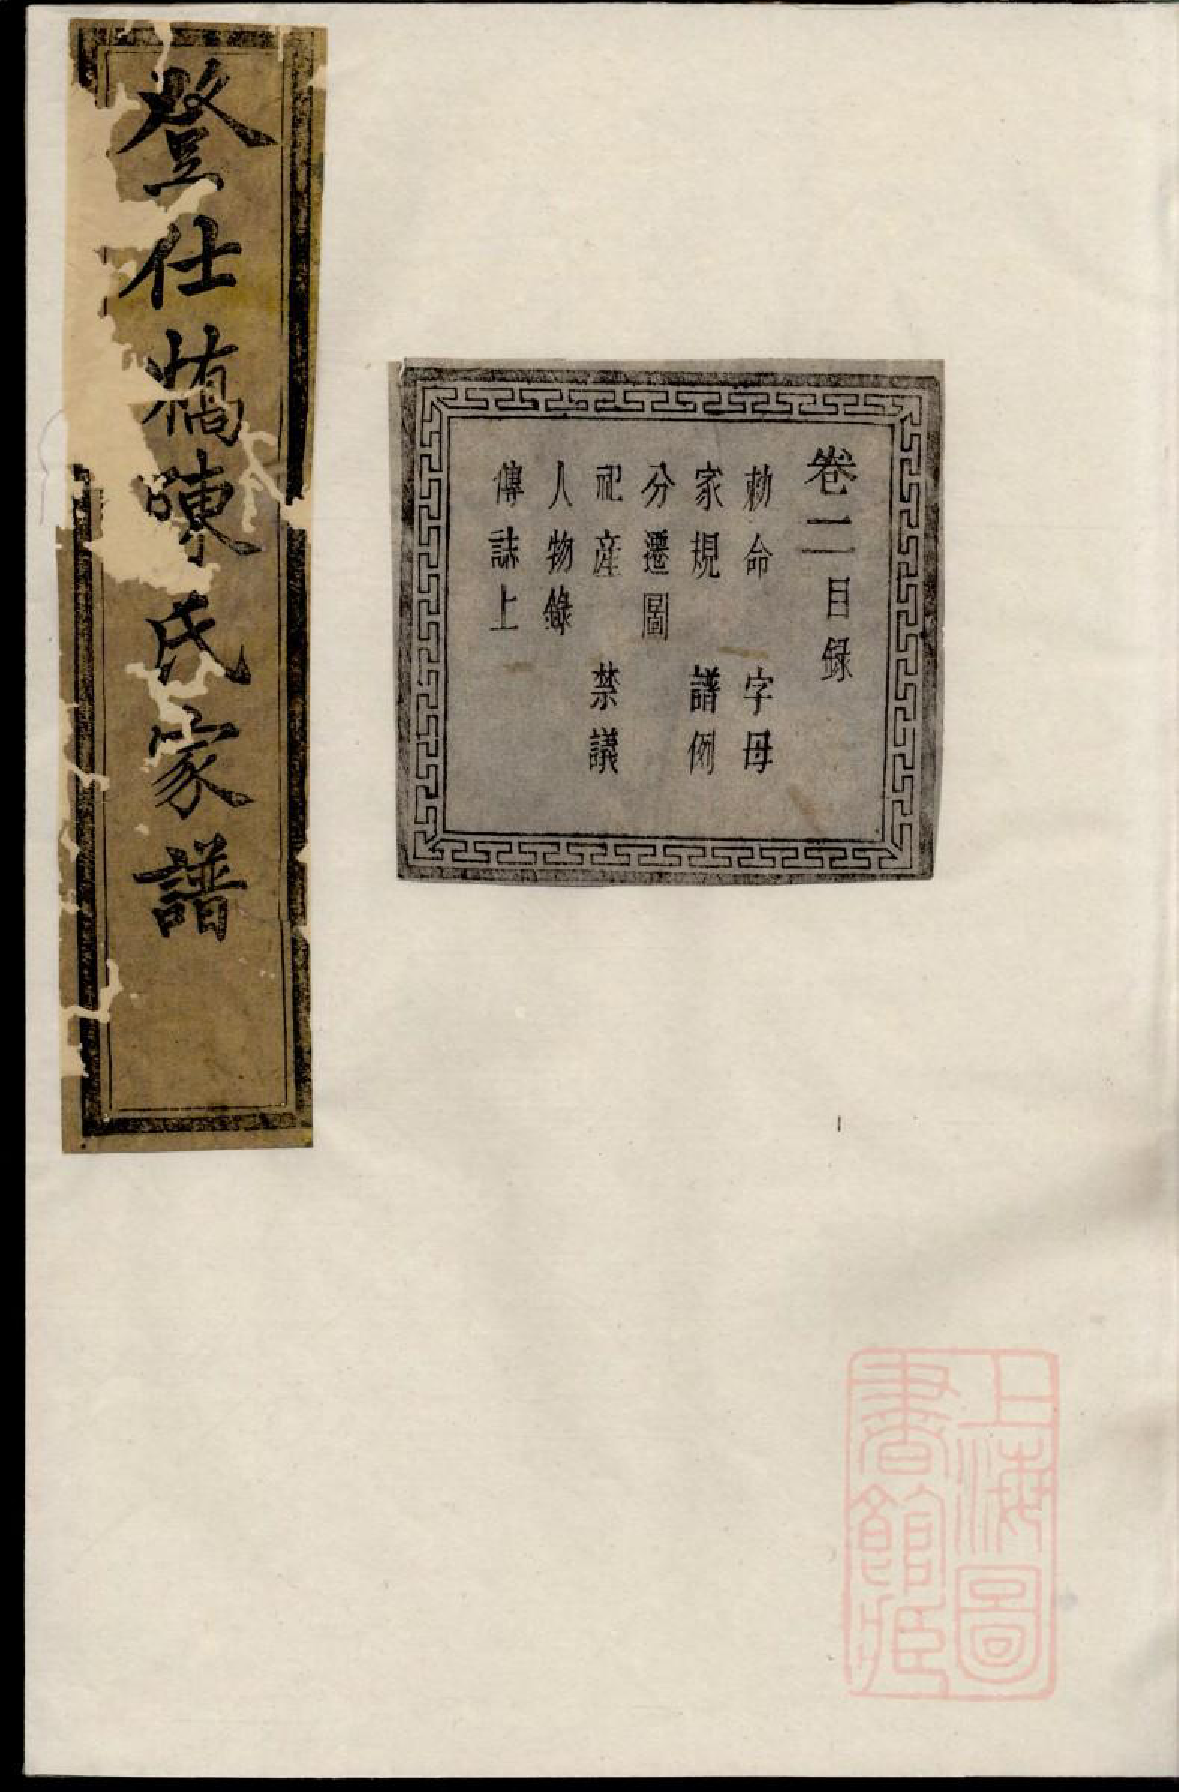 登仕橋陳氏家譜
卷二目录
勅命 字母
家規 譜例
分遷圖
祀産 禁議
人物錄
傳誌上
上海圖書館藏